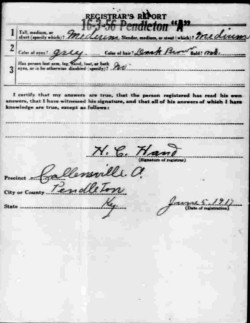 REGISTRAR'S REPORT
16-3-56 Pendleton "A"
1 Tall, medium, or short (specify which)? Medium Slender, medium, or stout (which)? Medium
2 Color of eyes? grey Color of hair? Dark Bro Bald? no
3 Has person lost arm, leg, hand, foot, or both eyes, or is he otherwise disabled (specify)? No
I certify that my answers are true, that the person registered has read his own
answers, that I have witnessed his signature, and that all of his answers of which I have
knowledge are true, except as follows:
H. C. Hand
(Signature of registrar)
Precinct Callensville A.
City or County Pendleton
State Ky
June 5, 1917
(Date of registration)